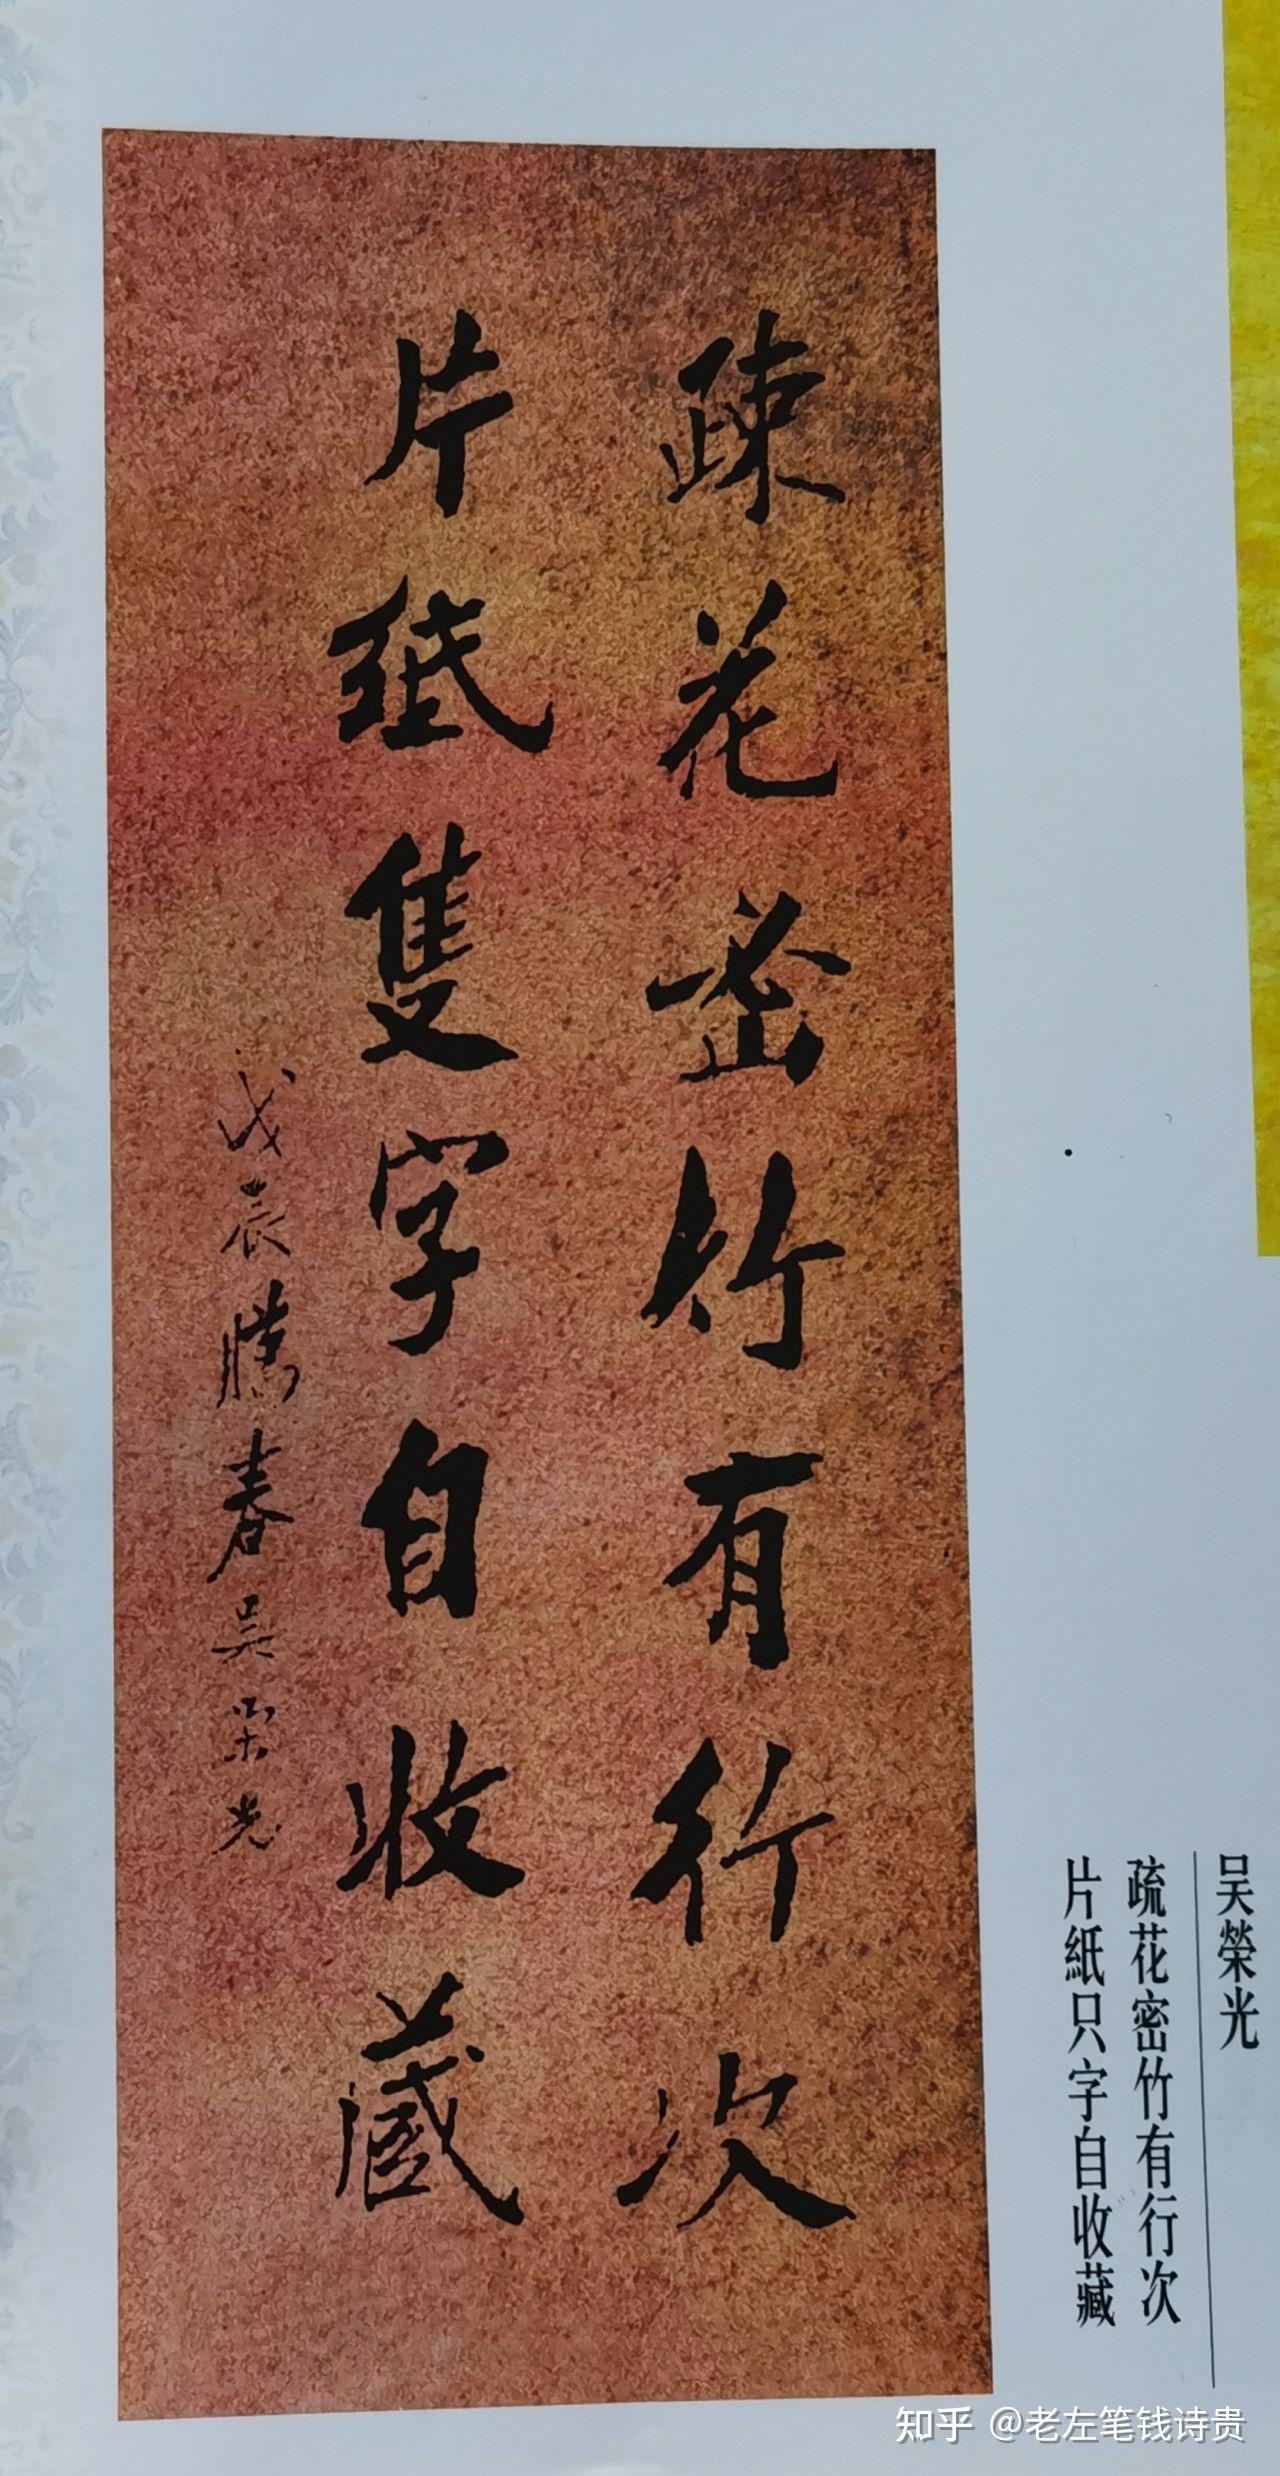 疎花密竹有行次
片紙隻字自收藏
戊辰臘春吴榮光
吴榮光
疏花密竹有行次
片紙只字自收藏
知乎 @老左笔钱诗贵